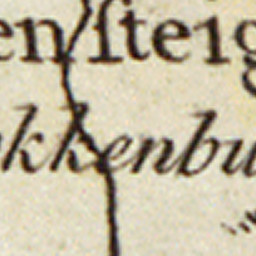 en ſteig
kkenbu